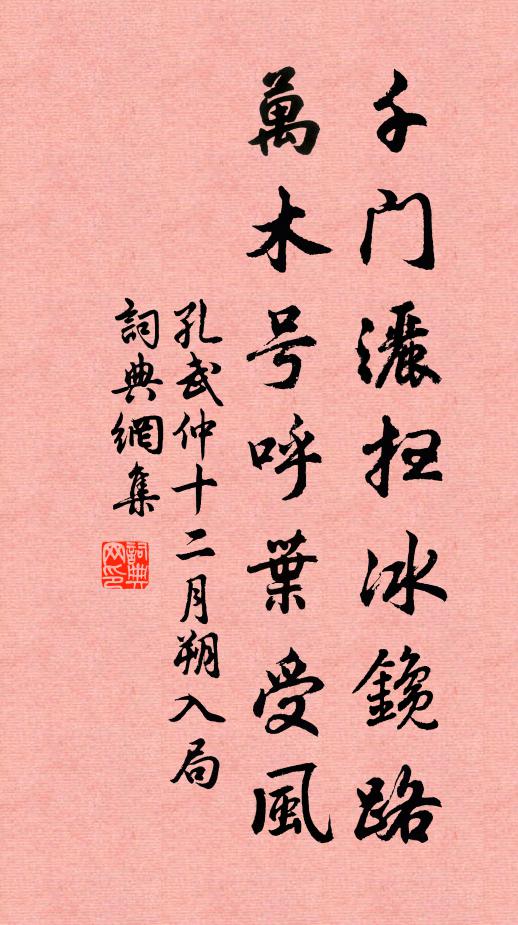 千门灑扫冰鑱路
萬木号呼葉受風
孔武仲十二月朔入局
詞典網集
詞典网印